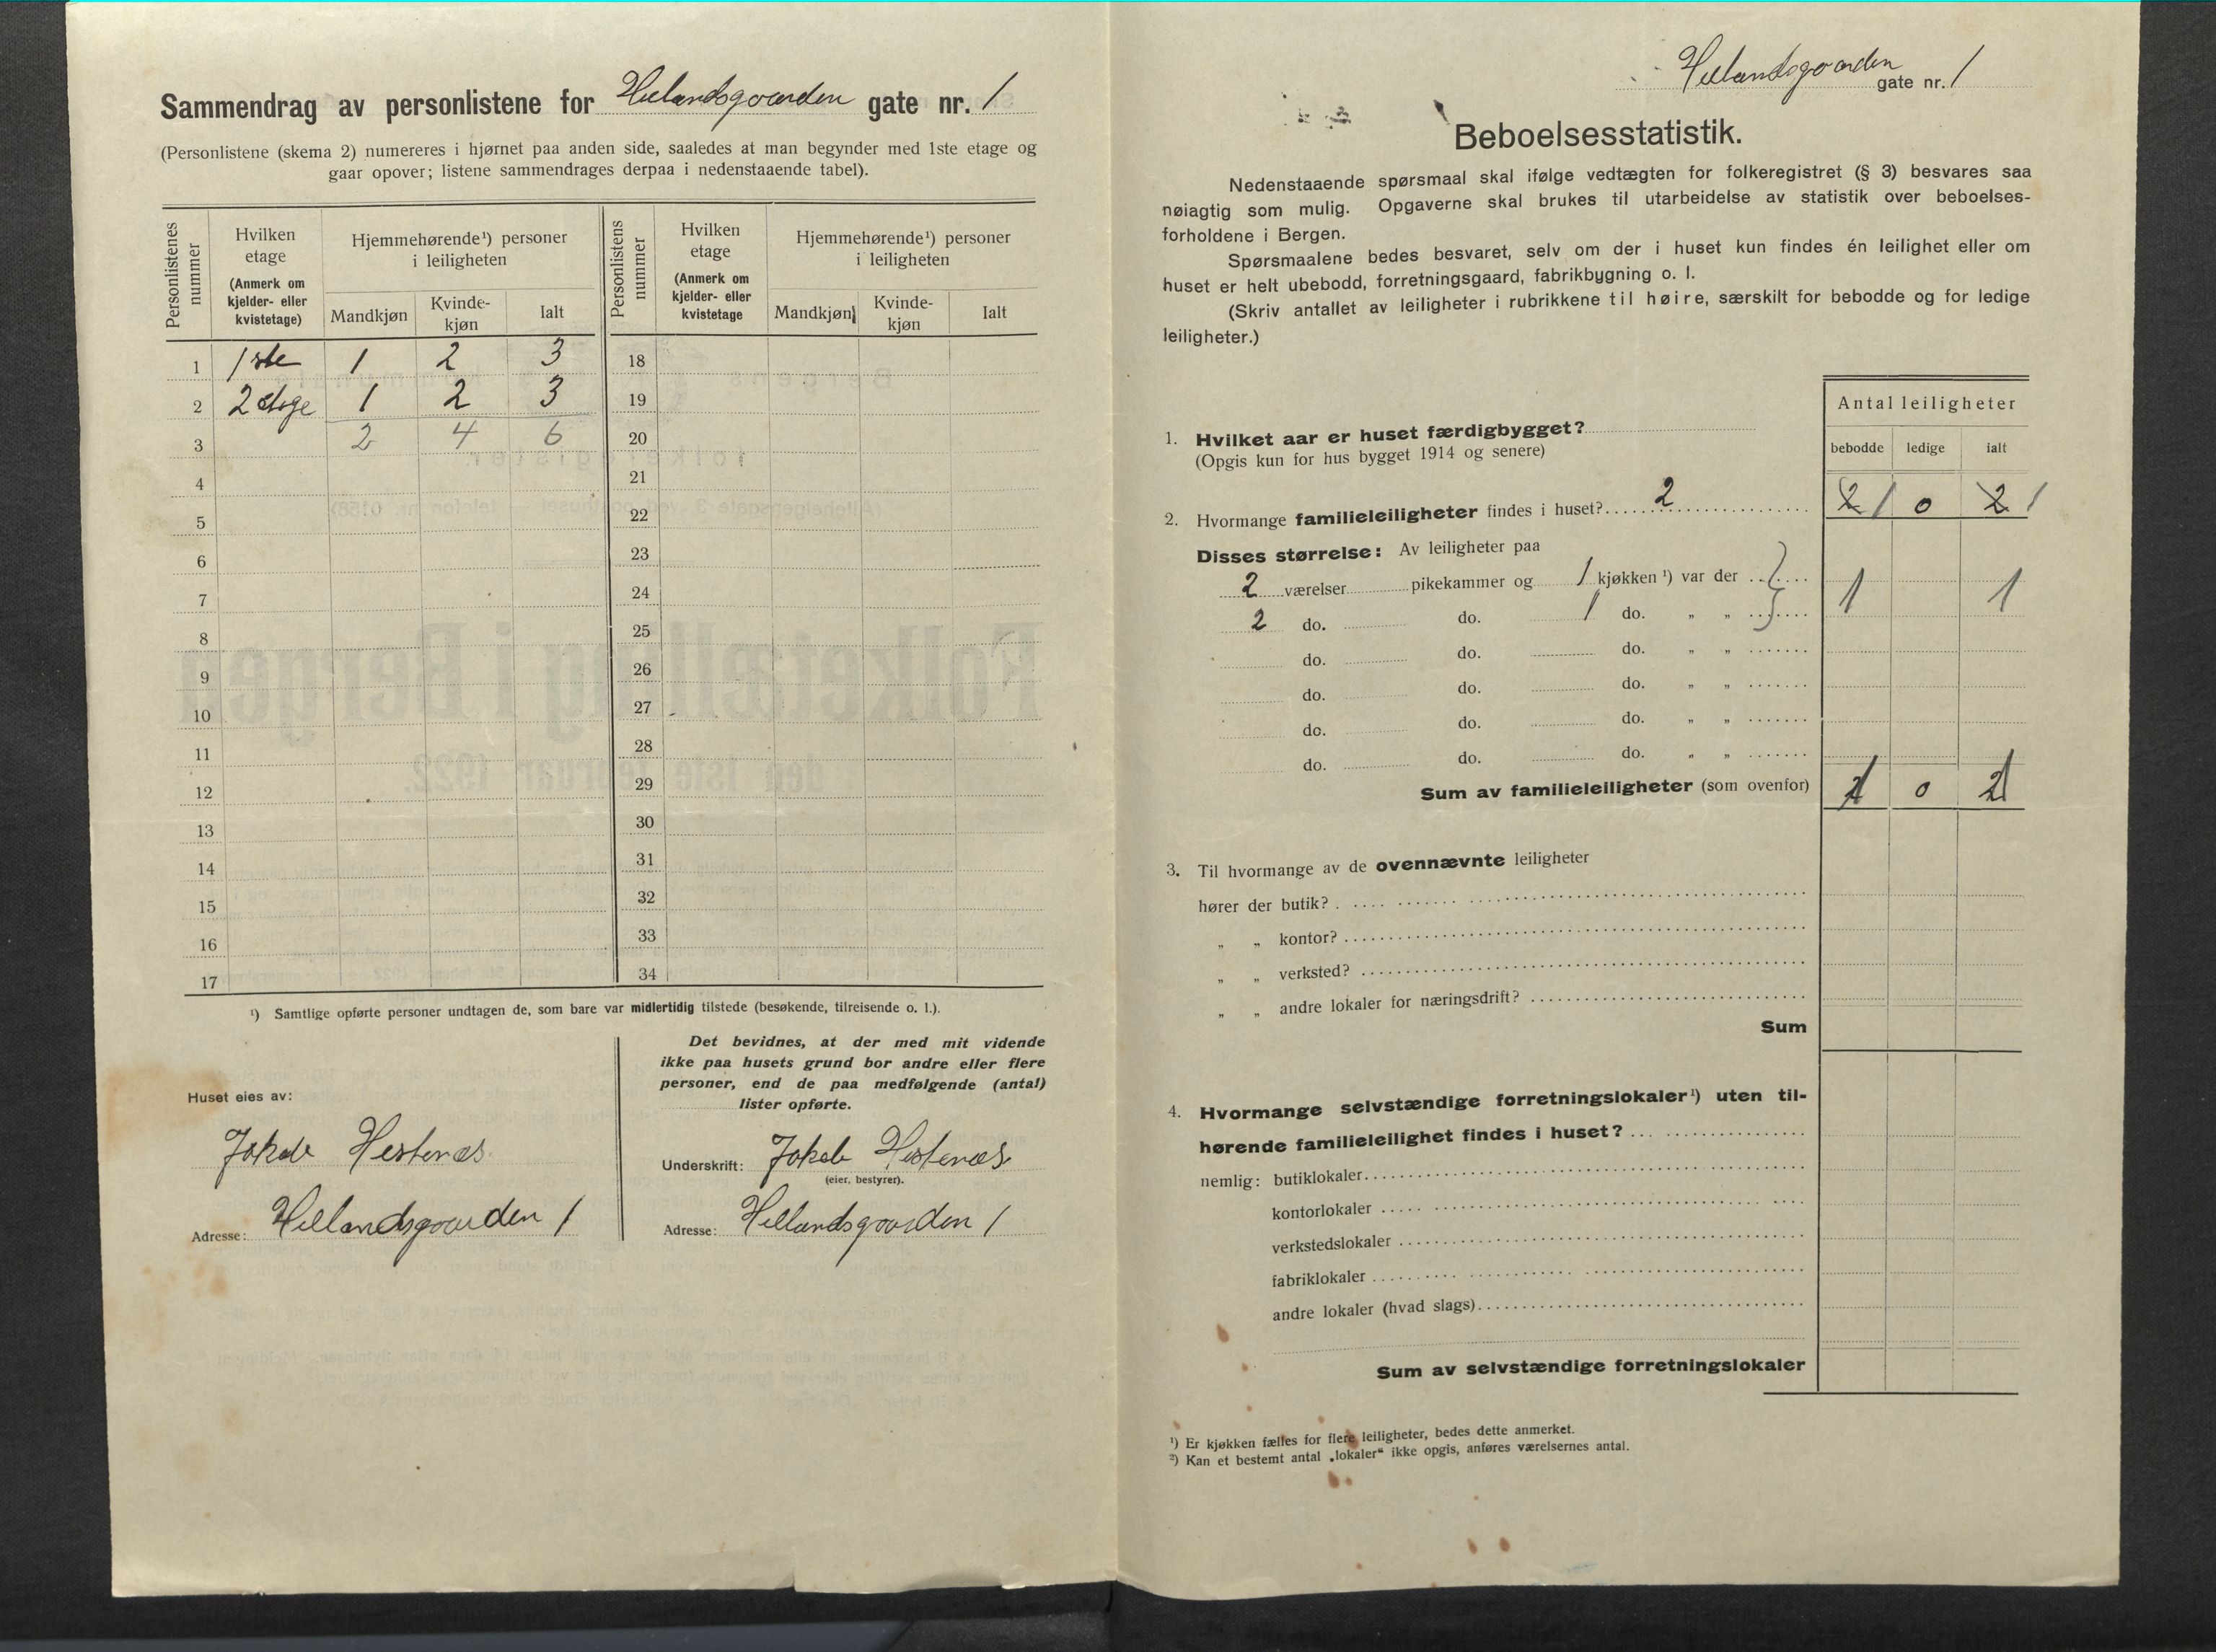 Sammendrag av personlistene for Hillandsgaarden gate nr. 1
(Personlistene (skema 2) numereres i hjørnet paa anden side, saaledes at man begynder med 1ste etage og
gaar opover; listene sammendrages derpaa i nedenstaaende tabel).
Personlistenes nummer
Hvilken etage
(Anmerk om kjelder- eller kvistetage)
Hjemmehørende¹) personer i leiligheten
Mandkjøn
Kvinde-kjøn
Ialt
Personlistens nummer
Hvilken etage
(Anmerk om kjelder- eller kvistetage
Hjemmehørende¹) personer i leiligheten
Mandkjøn
Kvinde-kjøn
Ialt
1 1ste 1 2 3 18
2 2 etage 1 2 3 19
3 2 4 6 20
4 21
5 22
6 23
7 24
8 25
9 26
10 27
11 28
12 29
13 30
14 31
15 32
16 33
17 34
¹) Samtlige opførte personer undtagen de, som bare var midlertidig tilstede (besøkende, tilreisende o. l.).
Huset eies av:
Jakob Hestenæs
Adresse: Hillandsgaarden 1
Det bevidnes, at der med mit vidende
ikke paa husets grund bor andre eller flere
personer, end de paa medfølgende (antal)
lister opførte.
Underskrift: Jakob Hestenæs
(eier, bestyrer).
Adresse: Hillandsgaarden 1
Hillandsgaarden gate nr. 1
Beboelsesstatistik.
Nedenstaaende spørsmaal skal ifølge vedtægten for folkeregistret (§ 3) besvares saa
nøiagtig som mulig. Opgaverne skal brukes til utarbeidelse av statistik over beboelses-
forholdene i Bergen.
Spørsmaalene bedes besvaret, selv om der i huset kun findes én leilighet eller om
huset er helt ubebodd, forretningsgaard, fabrikbygning o. l.
(Skriv antallet av leiligheter i rubrikkene til høire, særskilt for bebodde og for ledige
leiligheter.)
Antal leiligheter
bebodde ledige ialt
1. Hvilket aar er huset færdigbygget?
(Opgis kun for hus bygget 1914 og senere)
2. Hvormange familieleiligheter findes i huset? 2 2 1 0 2 1
Disses størrelse: Av leiligheter paa
2 værelser pikekammer og 1 kjøkken ¹) var der 1 1
2 do. do. 1 do. „ „
do. do. do. „ „
do. do. do. „ „
do. do. do. „ „
do. do. do. „ „
Sum av familieleiligheter (som ovenfor) 1 0 1
3. Til hvormange av de ovennævnte leiligheter
hører der butik?
„ „ kontor?
„ „ verksted?
„ „ andre lokaler for næringsdrift?
Sum
4. Hvormange selvstændige forretningslokaler¹) uten til-
hørende familieleilighet findes i huset?
nemlig: butiklokaler
kontorlokaler
verkstedslokaler
fabriklokaler
andre lokaler (hvad slags)
Sum av selvstændige forretningslokaler
¹) Er kjøkken fælles for flere leiligheter, bedes dette anmerket.
²) Kan et bestemt antal „lokaler“ ikke opgis, anføres værelsernes antal.